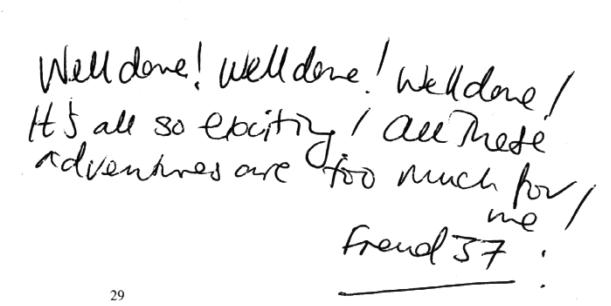 Well done! Well done! Well done!
It's all so exciting! All these
adventures are too much for
me!
Freud 37
29